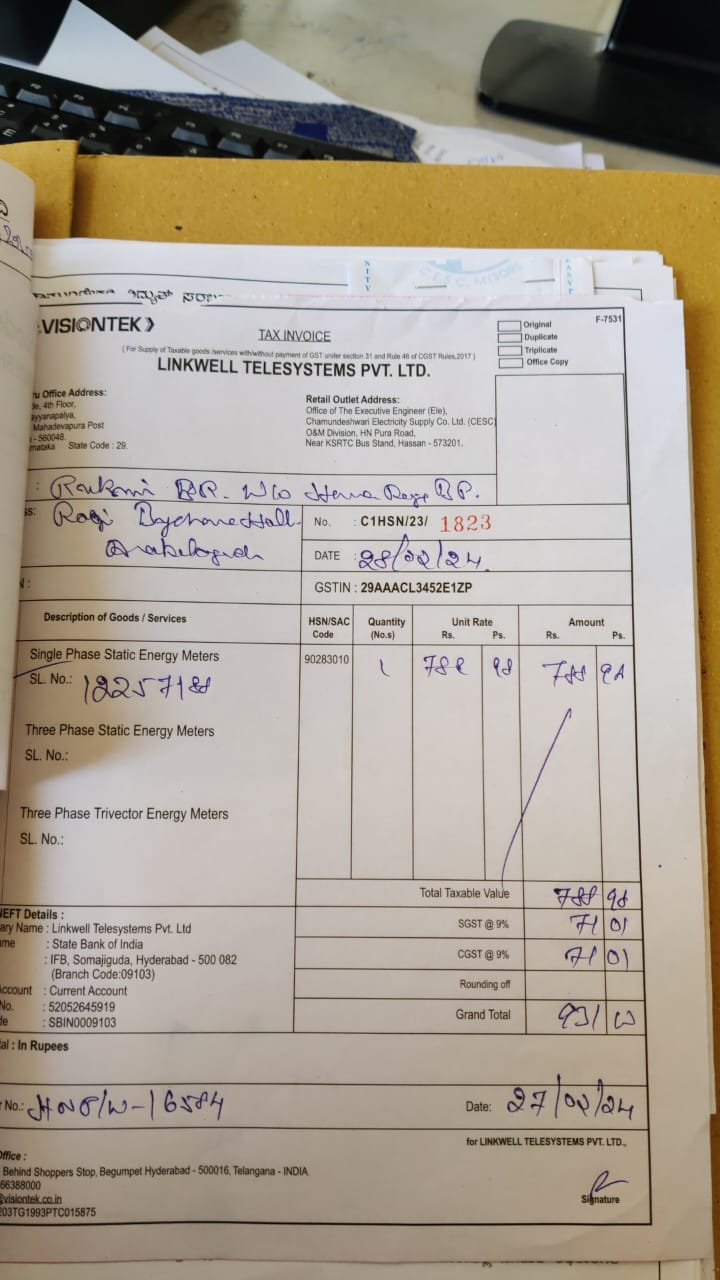 VISIONTEK
TAX INVOICE
( For Supply of Taxable goods /services with/without payment of GST under section 31 and Rule 46 of CGST Rules,2017 )
LINKWELL TELESYSTEMS PVT. LTD.
Original
Duplicate
Triplicate
Office Copy
F-7531
Office Address:
4th Floor,
Mahadevapura Post
- 560048.
State Code : 29.
Retail Outlet Address:
Office of The Executive Engineer (Ele),
Chamundeshwari Electricity Supply Co. Ltd. (CESC)
O&M Division, HN Pura Road,
Near KSRTC Bus Stand, Hassan - 573201.
BR. W/o BP.
No. : C1HSN/23/ 1823
DATE : 28/02/24.
GSTIN : 29AAACL3452E1ZP
Description of Goods / Services
HSN/SAC Code
Quantity (No.s)
Unit Rate
Rs. Ps.
Amount
Rs. Ps.
Single Phase Static Energy Meters 90283010 1 788 98 788 98
SL. No.: 12257188
Three Phase Static Energy Meters
SL. No.:
Three Phase Trivector Energy Meters
SL. No.:
Total Taxable Value 788 98
SGST @ 9% 71 01
CGST @ 9% 71 01
Rounding off
Grand Total 931 00
NEFT Details :
Name : Linkwell Telesystems Pvt. Ltd
: State Bank of India
: IFB, Somajiguda, Hyderabad - 500 082
(Branch Code:09103)
Account : Current Account
No. : 52052645919
: SBIN0009103
: In Rupees
No.: HNP/W-16584
Date: 27/02/24
for LINKWELL TELESYSTEMS PVT. LTD.,
Office :
Behind Shoppers Stop, Begumpet Hyderabad - 500016, Telangana - INDIA.
66388000
@visiontek.co.in
203TG1993PTC015875
Signature